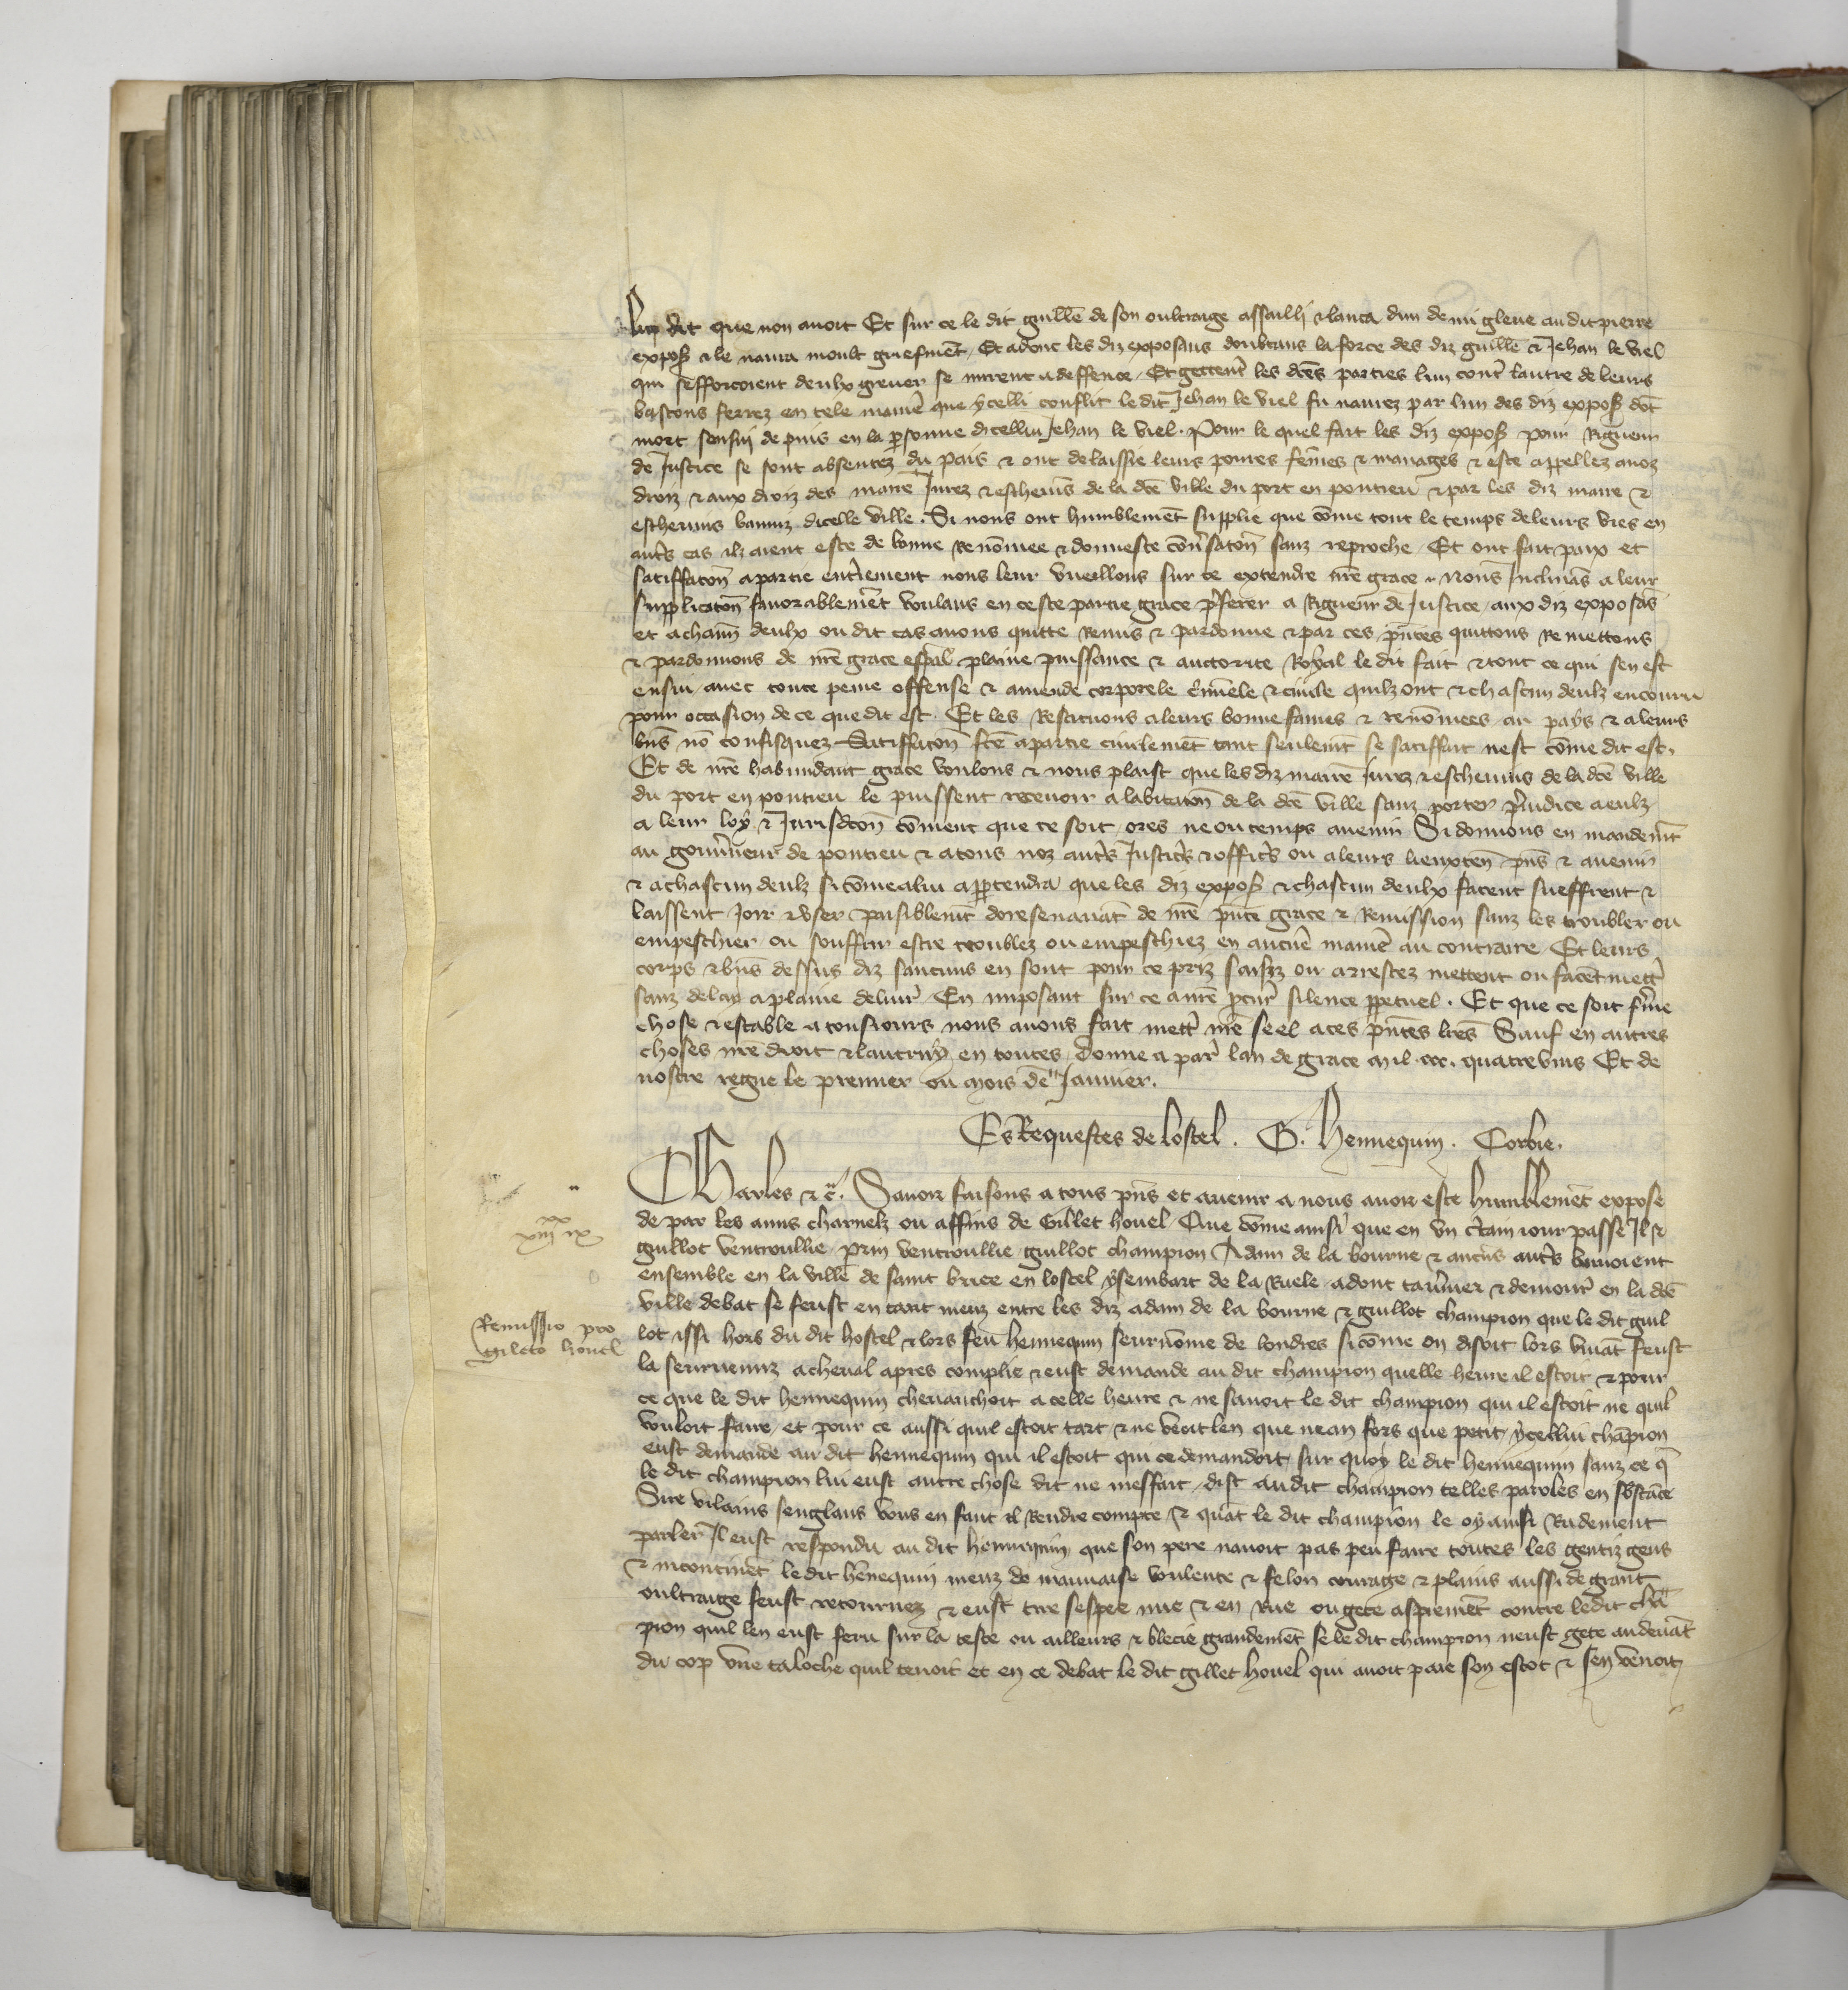 luy dit que non avoit Et sur ce le dit guille͂ de son oultrage assailli & lanca dun demi gleve au dit pierre
expos͂ & le navra moult griefmet͂ / Et adonc les diz exposans doubtans la force des diz guille͂ & Jehan le viel
qui sefforcoient deulx grever se mirent a deffence / Et getteret͂ les dc͂es parties lun cont͂ lautre de leurs
bastons ferrez en tele manie͂ que ycelli conflit le dit Jehan le viel fu navrez par lun des diz expos͂ do͂t
mort sensui depuis en la p͂sonne dicellui Jehan le viel . Pour le quel fait les diz expos͂ pour Rigueur
de Justice se sont absentez du pais & ont delaissie leurs povres fem͂es & manages & este appellez a noz
droiz & aux droiz des maire Jurez & eschevi͂s de la dc͂e ville du port en pontieu & par les diz maire &
eschevins banniz dicelle ville . Si nous ont humblemet͂ supplie que co͂me tout le temps de leurs vies en
aut͂s cas ilz aient este de bonne Reno͂mee & donneste con͂saton͂ sanz reproche Et ont fait paix et
satiffaton͂ a partie entie͂rement nous leur vueillons sur ce extendre nr͂e grace / Nous Inclina͂s a leur
supplicaton͂ favorablemet͂ voulans en ceste partie grace p͂ferer a Rigueur de Justice aux diz exposa͂s
et a chacu͂n deulx ou dit cas avons quitte Remis & pardonne & par ces pn͂tes quittons Remettons
& pardonnons de nr͂e grace esp͂al plaine puissance & auctorite Royal le dit fait & tout ce qui sen est
ensui avec toute peine offense & amende corporele c͂minele & civile quilz ont & chascun deulz encouru
pour occasion de ce que dit est . Et les Restituons a leurs bonne fames & reno͂mees au pays & a leurs
bn͂s no͂ confisquez Satiffaton͂ fc͂e a partie civilemet͂ tant seulemt͂ se satiffait nest co͂me dit est .
Et de nr͂e habundant grace voulons & nous plaist que les diz maire Jurez & eschevins de la dc͂e ville
du port en pontieu le puissent recevoir a labitaton͂ de la dc͂e ville sanz porter p͂judice a eulz
a leur loy & Jurisdcon͂ co͂ment que ce soit ores ne ou temps avenir Si donnons en mandemt͂
au gouv͂neur de pontieu & a tous noz aut͂s Justic͂s & offic͂s ou a leurs lieuxten͂ pn͂s & avenir
& a chascun deulz si co͂me a lui app͂tendra que les diz expos͂ & chascun deulx facent sueffrent &
laissent Joir & user paisiblemt͂ doresenavat͂ de nr͂e pn͂te grace & Remission sanz les troubler ou
empeschier ou souffrir estre troublez ou empeschiez en aucun͂e manie͂ au contraire / Et leurs
corps & bn͂s dessus diz saucuns en sont pour ce priz saisiz ou arrestez mettent ou facet͂ mett͂
sanz delay a plaine delivr͂ / En imposant sur ce a nr͂e p͂cur͂ silence pp͂etuel . Et que ce soit f͂me
chose & estable a tousiours nous avons fait mett͂ nr͂e seel a ces pn͂tes lr͂es Sauf en autres
choses nr͂e droit & lautruy en toutes / Donne a par͂ lan de grace mil .ccc. quatrevins Et de
nostre regne le premier ou mois de Janvier .
Es Requestes de lostel . G . Hennequin . Corbie .
Charles & c͂ . Savoir faisons a tous pn͂s et avenir a nous avoir este humblemet͂ expose
de par les amis charnelz ou affins de Gillet houel / Que co͂me ainsi que en un c͂tain jour passe Il &
guillot ventroullie prin ventroullie guillot champion Adam de la bourne & aucu͂s aut͂s buvoient
ensemble en la ville de saint brice en lostel ysembart de la Ruele adont tav͂nier & demour͂ en la dc͂e
ville debat se feust en tant meuz entre les diz adam de la bourne & guillot champion que le dit guil
lot issi hors du dit hostel & lors feu hennequin seurno͂me de londres si co͂me on disoit lors viva͂t feust
la seurvenuz a cheval apres complie & eust demande au dit champion quelle heure il estoit & pour
ce que le dit hennequin chevauchoit a celle heure & ne savoit le dit champion qui il estoit ne quil
vouloit faire / et pour ce aussi quil estoit tart & ne veoit len que nean fors que petit / ycellui cha͂pion
eust demande au dit hennequin qui il estoit qui ce demandoit sur quoy le dit hennequin sanz ce q͂
le dit champion lui eust autre chose dit ne meffait / dist au dit champion telles paroles en s͂bsta͂ce
Sire vilains senglans vous en faut il Rendre compte / & qua͂t le dit champion le oy ainsi Rudement
parler Il eust respondu au dit hennequin que son pere navoit pas peu faire toutes les gentiz gens
& incontinet͂ le dit he͂nequin meuz de mauvaise voulente & felon courage & plains aussi de grant
oultrage feust retournez & eust tire sespee nue & en Rue ou gete asprement͂ contre ledit cha͂
pion quil len eust feru sur la teste ou ailleurs & blecie grandemet͂ se le dit champion neust gete au deva͂t
du cop une taloche quil tenoit et en ce debat le dit gillet houel qui avoit paie son escot & sen venoit
xx
xiiii ix
Remissio pro
gileto houel